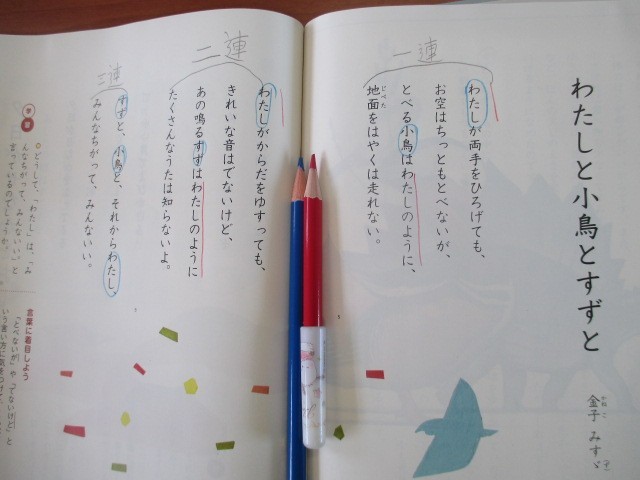 わたしと小鳥とすずと
金子 みすゞ
一連
わたしが両手をひろげても、
お空はちっともとべないが、
とべる小鳥はわたしのように、
地面をはやくは走れない。
二連
わたしがからだをゆすっても、
きれいな音はでないけど、
あの鳴るすずはわたしのように
たくさんなうたは知らないよ。
三連
すずと、小鳥と、それからわたし、
みんなちがって、みんないい。
どうして、「わたし」は、「み
んなちがって、みんないい」と
言っているのでしょうか。
言葉に着目しよう
「とべないが」「でないけど」と
いう言い方に気をつけて